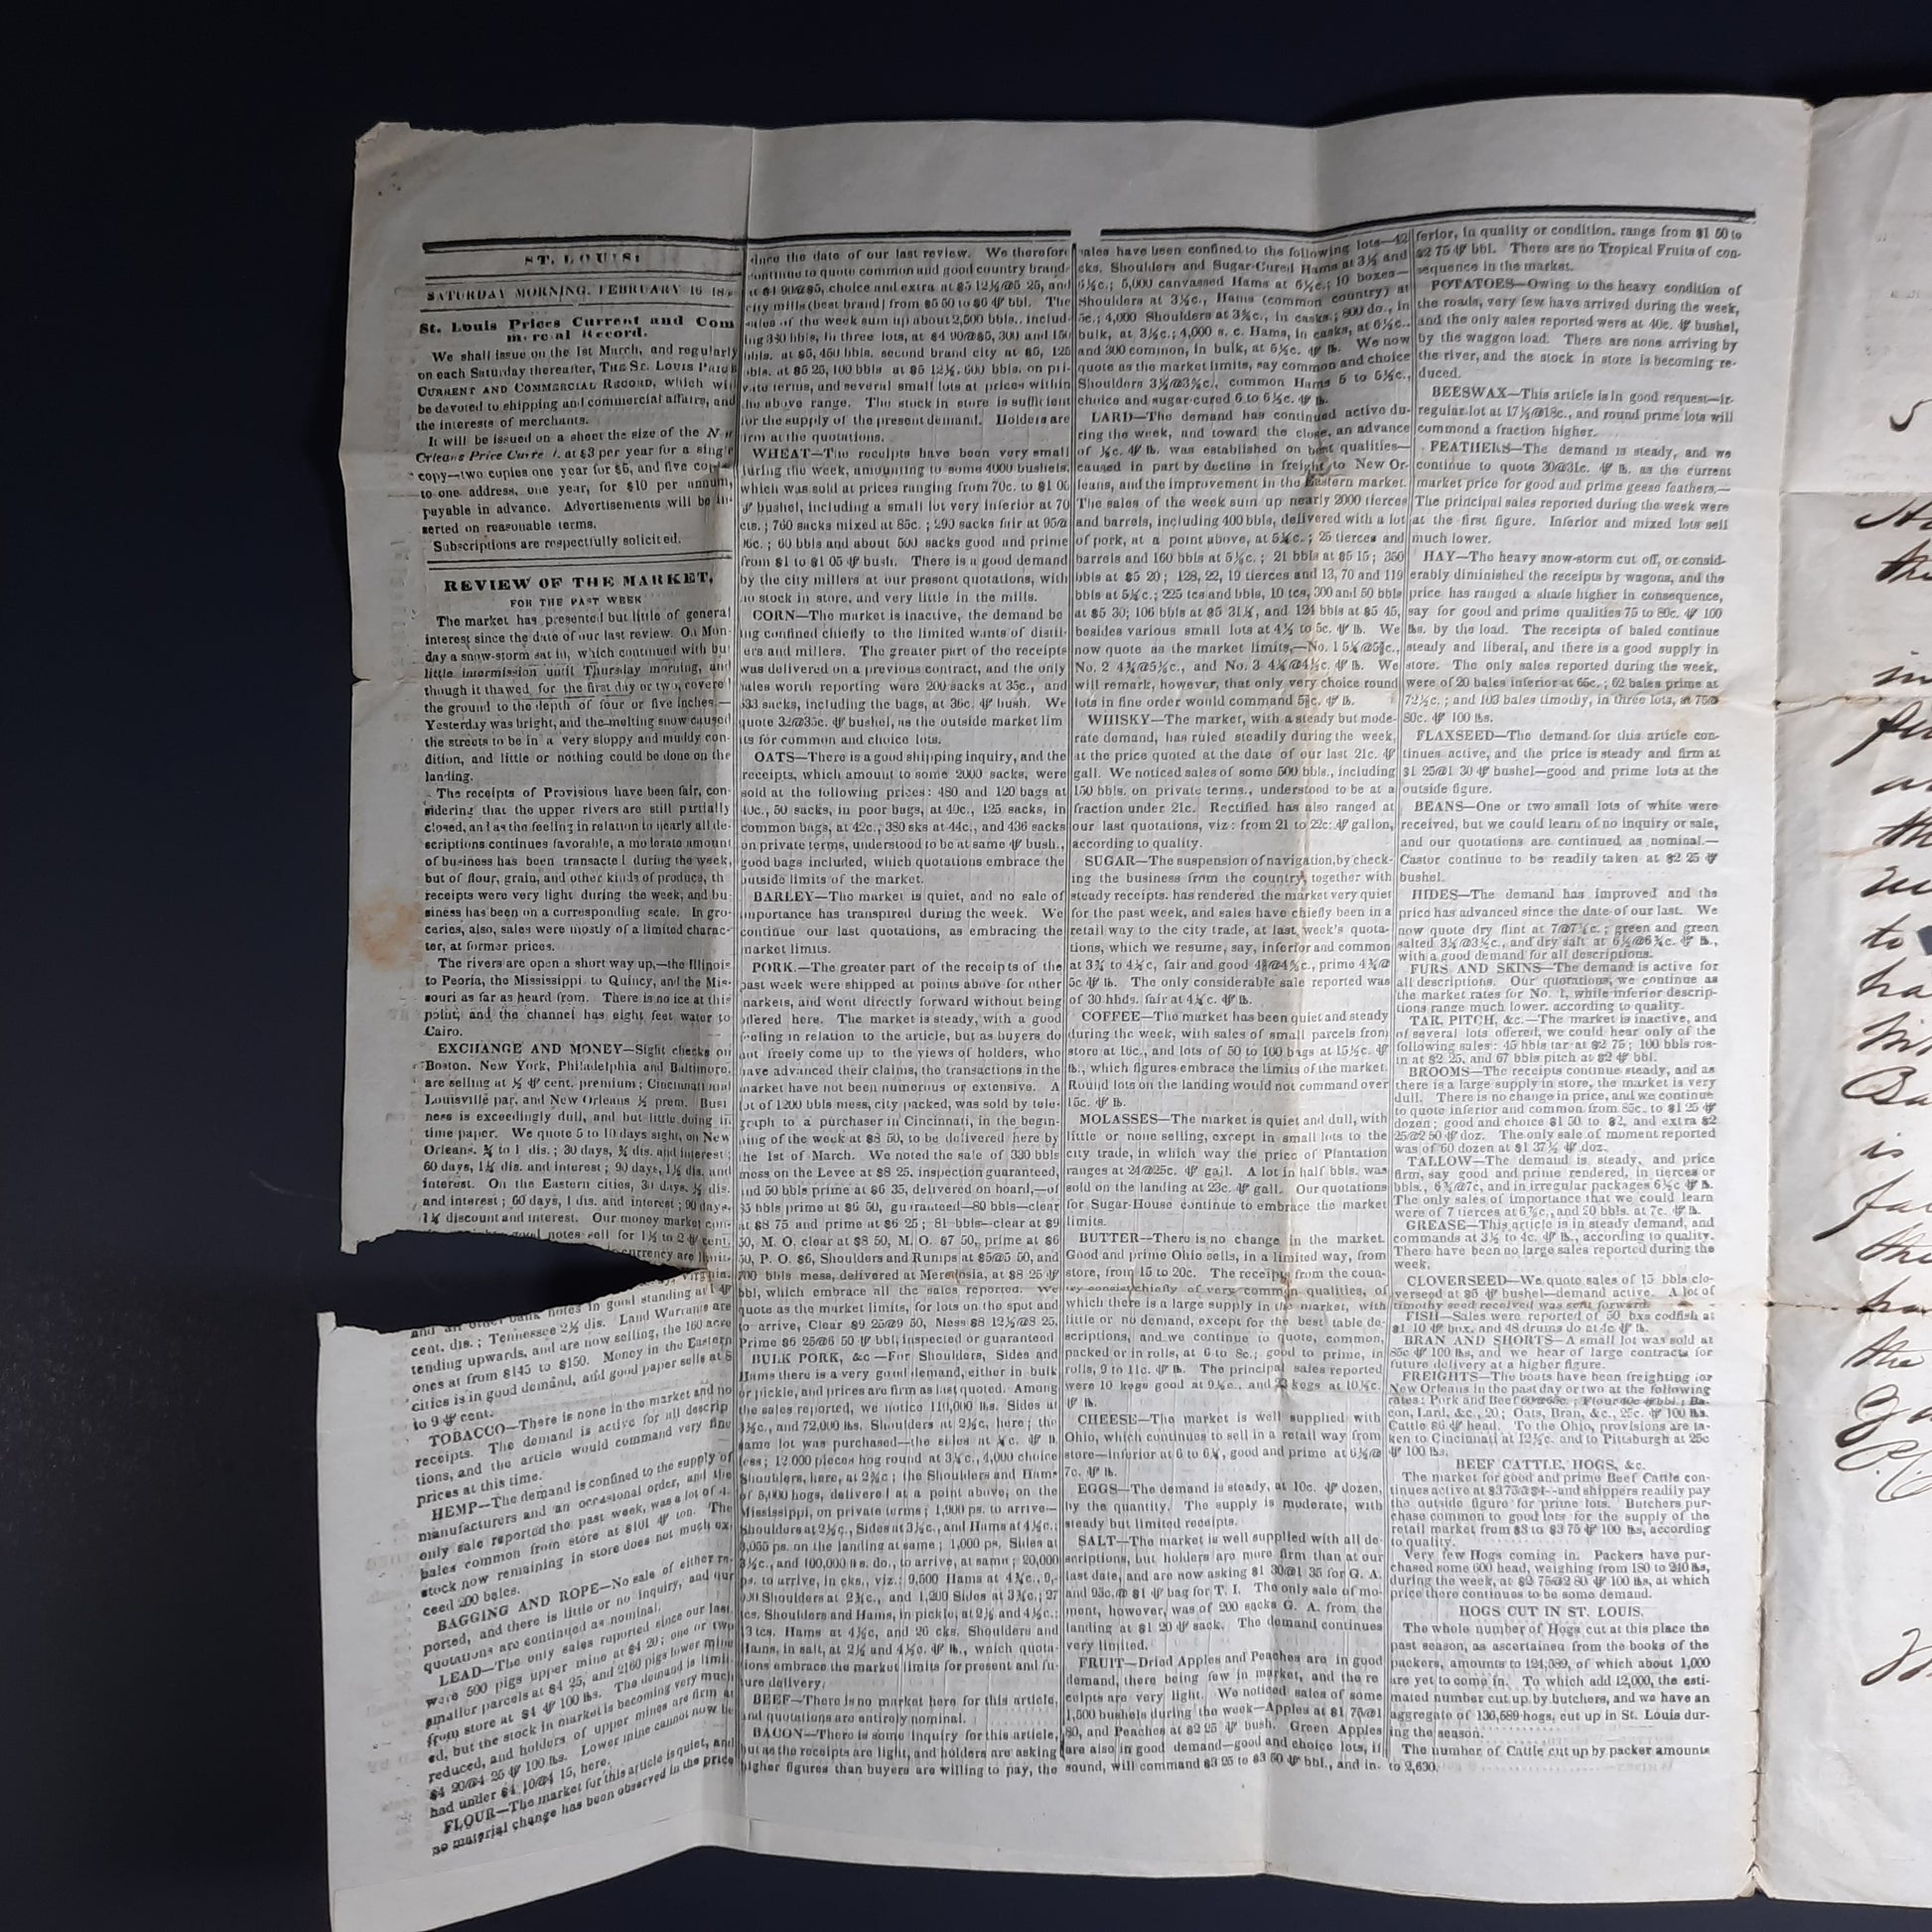 ST. LOUIS:
SATURDAY MORNING, FEBRUARY 16
St. Louis Prices Current and Com
mercial Record.
We shall issue on the 1st March, and regularly
on each Saturday thereafter, THE ST. LOUIS PRICE
CURRENT AND COMMERCIAL RECORD, which will
be devoted to shipping and commercial affairs, and
the interests of merchants.
It will be issued on a sheet the size of the New
Orleans Price Current, at $3 per year for a single
copy—two copies one year for $5, and five copies
to one address, one year, for $10 per annum,
payable in advance. Advertisements will be in-
serted on reasonable terms.
Subscriptions are respectfully solicited.
REVIEW OF THE MARKET,
FOR THE PAST WEEK
The market has presented but little of general
interest since the date of our last review. On Mon-
day a snow-storm sat in, which continued with but
little intermission until Thursday morning, and
though it thawed for the first day or two, covered
the ground to the depth of four or five inches.—
Yesterday was bright, and the melting snow caused
the streets to be in a very sloppy and muddy con-
dition, and little or nothing could be done on the
landing.
The receipts of Provisions have been fair, con-
sidering that the upper rivers are still partially
closed, and as the feeling in relation to nearly all de-
scriptions continues favorable, a moderate amount
of business has been transacted during the week,
but of flour, grain, and other kinds of produce, th
receipts were very light during the week, and bu-
siness has been on a corresponding scale. In gro-
ceries, also, sales were mostly of a limited charac-
ter, at former prices.
The rivers are open a short way up,—the Illinois
to Peoria, the Mississippi to Quincy, and the Mis-
souri as far as heard from. There is no ice at this
point, and the channel has eight feet water to
Cairo.
EXCHANGE AND MONEY—Sight checks on
Boston, New York, Philadelphia and Baltimore,
are selling at ½ ⅌ cent. premium; Cincinnati and
Louisville par, and New Orleans ½ prem. Busi
ness is exceedingly dull, and but little doing in
time paper. We quote 5 to 10 days sight, on New
Orleans, ¾ to 1 dis.; 30 days, ¾ dis. and interest;
60 days, 1¼ dis. and interest; 90 days, 1½ dis. and
interest. On the Eastern cities, 30 days, ½ dis.
and interest; 60 days, 1 dis. and interest; 90 days,
1¼ discount and interest. Our money market con-
good notes sell for 1½ to 2 ⅌ cent.
currency are limit-
Virginia
and all other bank notes in good standing at 1 ⅌
cent. dis.; Tennessee 2½ dis. Land Warrants are
tending upwards, and are now selling, the 160 acre
ones at from $145 to $150. Money in the Eastern
cities is in good demand, and good paper sells at 8
to 9 ⅌ cent.
TOBACCO—There is none in the market and no
receipts. The demand is active for all descrip
tions, and the article would command very fine
prices at this time.
HEMP—The demand is confined to the supply of
manufacturers and an occasional order, and the
only sale reported the past week, was a lot of 4-
bales common from store at $101 ⅌ ton. The
stock now remaining in store does not much ex-
ceed 200 bales.
BAGGING AND ROPE—No sale of either re-
ported, and there is little or no inquiry, and our
quotations are continued as nominal.
LEAD—The only sales reported since our last,
were 500 pigs upper mine at $4 20; one or two
smaller parcels at $4 25, and 2160 pigs lower mine
from store at $4 ⅌ 100 lbs. The demand is limit-
ed, but the stock in market is becoming very much
reduced, and holders of upper mines are firm at
$4 20@4 25 ⅌ 100 lbs. Lower mine cannot now be
had under $4 10@4 15, here.
FLOUR—The market for this article is quiet, and
no material change has been observed in the price
since the date of our last review. We therefore
continue to quote common and good country brand
at $4 90@$5, choice and extra at $5 12½@5 25, and
city mills (best brand) from $5 50 to $6 ⅌ bbl. The
sales of the week sum up about 2,600 bbls., includ-
ing 350 bbls. in three lots, at $4 90@$5, 300 and 150
bbls. at $5, 450 bbls. second brand city at $5, 125
bbls. at $5 25, 100 bbls at $5 12½, 600 bbls. on pri-
vate terms, and several small lots at prices within
the above range. The stock in store is sufficient
for the supply of the present demand. Holders are
firm at the quotations.
WHEAT—The receipts have been very small
during the week, amounting to some 4000 bushels,
which was sold at prices ranging from 70c. to $1 05
⅌ bushel, including a small lot very inferior at 70
cts.; 760 sacks mixed at 85c.; 290 sacks fair at 95@
96c.; 60 bbls and about 500 sacks good and prime
from $1 to $1 05 ⅌ bush. There is a good demand
by the city millers at our present quotations, with
no stock in store, and very little in the mills.
CORN—The market is inactive, the demand be
ing confined chiefly to the limited wants of distil-
ers and millers. The greater part of the receipts
was delivered on a previous contract, and the only
sales worth reporting were 200 sacks at 35c., and
533 sacks, including the bags, at 36c. ⅌ bush. We
quote 32@35c. ⅌ bushel, as the outside market lim
its for common and choice lots.
OATS—There is a good shipping inquiry, and the
receipts, which amount to some 2000 sacks, were
sold at the following prices: 480 and 120 bags at
40c., 50 sacks, in poor bags, at 40c., 125 sacks, in
common bags, at 42c., 380 sks at 44c., and 436 sacks
on private terms, understood to be at same ⅌ bush.,
good bags included, which quotations embrace the
outside limits of the market.
BARLEY—The market is quiet, and no sale of
importance has transpired during the week. We
continue our last quotations, as embracing the
market limits.
PORK.—The greater part of the receipts of the
past week were shipped at points above for other
markets, and went directly forward without being
offered here. The market is steady, with a good
feeling in relation to the article, but as buyers do
not freely come up to the views of holders, who
have advanced their claims, the transactions in the
market have not been numerous or extensive. A
lot of 1200 bbls mess, city packed, was sold by tele-
graph to a purchaser in Cincinnati, in the begin-
ning of the week at $8 50, to be delivered here by
the 1st of March. We noted the sale of 330 bbls
mess on the Levee at $8 25, inspection guaranteed,
and 50 bbls prime at $6 35, delivered on board,—of
35 bbls prime at $6 50, guaranteed—80 bbls—clear
at $8 75 and prime at $6 25; 81 bbls—clear at $9
50, M. O. clear at $8 50, M. O. $7 50, prime at $6
50, P. O. $6, Shoulders and Rumps at $5@5 50, and
700 bbls mess, delivered at Meredosia, at $8 25 ⅌
bbl, which embrace all the sales reported. We
quote as the market limits, for lots on the spot and
to arrive, Clear $9 25@9 50, Mess $8 12½@8 25,
Prime $6 25@6 50 ⅌ bbl, inspected or guaranteed
BULK PORK, &c—For Shoulders, Sides and
Hams there is a very good demand, either in bulk
or pickle, and prices are firm as last quoted. Among
the sales reported, we notice 110,000 lbs. Sides at
3½c., and 72,000 lbs. Shoulders at 2½c, here; the
same lot was purchased—the sides at ⅛c. ⅌ lb
less; 12 000 pieces hog round at 3¼c., 4,000 choice
Shoulders, here, at 2¾c; the Shoulders and Hams
of 5,000 hogs, delivered at a point above, on the
Mississippi, on private terms; 1,900 ps. to arrive—
Shoulders at 2½c., Sides at 3½c., and Hams at 4½c.;
3,055 ps. on the landing at same; 1,000 ps. Sides at
3½c., and 100,000 lbs. do., to arrive, at same; 20,000
ps. to arrive, in cks., viz.: 9,500 Hams at 4¾c., 9,-
000 Shoulders at 2¾c., and 1,200 Sides at 3¾c.; 27
tcs. Shoulders and Hams, in pickle, at 2½ and 4½c.;
13 tcs. Hams at 4½c, and 26 cks. Shoulders and
Hams, in salt, at 2½ and 4½c. ⅌ lb., which quota-
tions embrace the market limits for present and fu-
ture delivery.
BEEF—There is no market here for this article,
and quotations are entirely nominal.
BACON—There is some inquiry for this article,
but as the receipts are light, and holders are asking
higher figures than buyers are willing to pay, the
sales have been confined to the following lots—42
cks. Shoulders and Sugar-Cured Hams at 3½ and
6½c.; 5,000 canvassed Hams at 6½c.; 10 boxes—
Shoulders at 3½c., Hams (common country) at
5c.; 4,000 Shoulders at 3¾c., in casks; 800 do., in
bulk, at 3½c.; 4,000 s. c. Hams, in casks, at 6½c.
and 300 common, in bulk, at 5½c. ⅌ lb. We now
quote as the market limits, say common and choice
Shoulders 3½@3¾c., common Hams 5 to 5½c.,
choice and sugar-cured 6 to 6½c. ⅌ lb.
LARD—The demand has continued active du-
ring the week, and toward the close, an advance
of ⅛c. ⅌ lb. was established on best qualities—
caused in part by decline in freight to New Or-
leans, and the improvement in the Eastern market.
The sales of the week sum up nearly 2000 tierces
and barrels, including 400 bbls, delivered with a lot
of pork, at a point above, at 5¼c.; 25 tierces and
barrels and 160 bbls at 5½c.; 21 bbls at $5 15; 350
bbls at $5 20; 128, 22, 19 tierces and 13, 70 and 119
bbls at 5¼c.; 225 tcs and bbls, 10 tcs, 300 and 50 bbls
at $5 30; 106 bbls at $5 31¼, and 124 bbls at $5 45,
besides various small lots at 4½ to 5c. ⅌ lb. We
now quote as the market limits,—No. 1 5¼@5⅜c.,
No. 2 4¾@5⅛c., and No. 3 4¼@4½c. ⅌ lb. We
will remark, however, that only very choice round
lots in fine order would command 5⅜c. ⅌ lb.
WHISKY—The market, with a steady but mode-
rate demand, has ruled steadily during the week,
at the price quoted at the date of our last 21c. ⅌
gall. We noticed sales of some 500 bbls., including
150 bbls. on private terms, understood to be at a
fraction under 21c. Rectified has also ranged at
our last quotations, viz: from 21 to 22c. ⅌ gallon,
according to quality.
SUGAR—The suspension of navigation, by check-
ing the business from the country, together with
steady receipts, has rendered the market very quiet
for the past week, and sales have chiefly been in a
retail way to the city trade, at last week's quota-
tions, which we resume, say, inferior and common
at 3¾ to 4¼c, fair and good 4⅜@4⅝c., prime 4¾@
5c. ⅌ lb. The only considerable sale reported was
of 30 hhds. fair at 4¼c. ⅌ lb.
COFFEE—The market has been quiet and steady
during the week, with sales of small parcels from
store at 16c., and lots of 50 to 100 bags at 15½c. ⅌
lb., which figures embrace the limits of the market.
Round lots on the landing would not command over
15c. ⅌ lb.
MOLASSES—The market is quiet and dull, with
little or none selling, except in small lots to the
city trade, in which way the price of Plantation
ranges at 24@25c. ⅌ gall. A lot in half bbls. was
sold on the landing at 23c. ⅌ gall. Our quotations
for Sugar-House continue to embrace the market
limits.
BUTTER—There is no change in the market.
Good and prime Ohio sells, in a limited way, from
store, from 15 to 20c. The receipts from the coun-
try consist chiefly of very common qualities, of
which there is a large supply in the market, with
little or no demand, except for the best table de-
scriptions, and we continue to quote, common,
packed or in rolls, at 6 to 8c.; good to prime, in
rolls, 9 to 11c. ⅌ lb. The principal sales reported
were 10 kegs good at 9½c., and 23 kegs at 10½c.
⅌ lb.
CHEESE—The market is well supplied with
Ohio, which continues to sell in a retail way from
store—inferior at 6 to 6¼, good and prime at 6½@
7c. ⅌ lb.
EGGS—The demand is steady, at 10c. ⅌ dozen,
by the quantity. The supply is moderate, with
steady but limited receipts.
SALT—The market is well supplied with all de-
scriptions, but holders are more firm than at our
last date, and are now asking $1 30@1 35 for G. A.
and 95c.@ $1 ⅌ bag for T. I. The only sale of mo-
ment, however, was of 200 sacks G. A. from the
landing at $1 20 ⅌ sack. The demand continues
very limited.
FRUIT—Dried Apples and Peaches are in good
demand, there being few in market, and the re
ceipts are very light. We noticed sales of some
1,500 bushels during the week—Apples at $1 75@1
80, and Peaches at $2 25 ⅌ bush. Green Apples
are also in good demand—good and choice lots, if
sound, will command $3 25 to $3 50 ⅌ bbl., and in-
ferior, in quality or condition, range from $1 50 to
$2 75 ⅌ bbl. There are no Tropical Fruits of con-
sequence in the market.
POTATOES—Owing to the heavy condition of
the roads, very few have arrived during the week,
and the only sales reported were at 40c. ⅌ bushel,
by the waggon load. There are none arriving by
the river, and the stock in store is becoming re-
duced.
BEESWAX—This article is in good request—ir-
regular lot at 17½@18c., and round prime lots will
commond a fraction higher.
FEATHERS—The demand is steady, and we
continue to quote 30@31c. ⅌ lb. as the current
market price for good and prime geese feathers.—
The principal sales reported during the week were
at the first figure. Inferior and mixed lots sell
much lower.
HAY—The heavy snow-storm cut off, or consid-
erably diminished the receipts by wagons, and the
price has ranged a shade higher in consequence,
say for good and prime qualities 75 to 80c. ⅌ 100
lbs. by the load. The receipts of baled continue
steady and liberal, and there is a good supply in
store. The only sales reported during the week,
were of 20 bales inferior at 65c.; 62 bales prime at
72½c.; and 103 bales timothy, in three lots, at 75@
80c. ⅌ 100 lbs.
FLAXSEED—The demand for this article con-
tinues active, and the price is steady and firm at
$1 25@1 30 ⅌ bushel—good and prime lots at the
outside figure.
BEANS—One or two small lots of white were
received, but we could learn of no inquiry or sale,
and our quotations are continued as nominal.—
Castor continue to be readily taken at $2 25 ⅌
bushel.
HIDES—The demand has improved and the
price has advanced since the date of our last. We
now quote dry flint at 7@7¼c.; green and green
salted 3¼@3½c., and dry salt at 6½@6¾c. ⅌ lb.,
with a good demand for all descriptions.
FURS AND SKINS—The demand is active for
all descriptions. Our quotations, we continue as
the market rates for No. 1, while inferior descrip-
tions range much lower, according to quality.
TAR, PITCH, &c.—The market is inactive, and
of several lots offered, we could hear only of the
following sales: 45 bbls tar at $2 75; 100 bbls ros-
in at $2 25, and 67 bbls pitch at $2 ⅌ bbl.
BROOMS—The receipts continue steady, and as
there is a large supply in store, the market is very
dull. There is no change in price, and we continue
to quote inferior and common from 85c. to $1 25 ⅌
dozen; good and choice $1 50 to $2, and extra $2
25@2 50 ⅌ doz. The only sale of moment reported
was of 60 dozen at $1 37½ ⅌ doz.
TALLOW—The demand is steady, and price
firm, say good and prime rendered, in tierces or
bbls., 6¾@7c, and in irregular packages 6½c ⅌ lb.
The only sales of importance that we could learn
were of 7 tierces at 6¾c., and 20 bbls. at 7c. ⅌ lb.
GREASE—This article is in steady demand, and
commands at 3½ to 4c. ⅌ lb., according to quality.
There have been no large sales reported during the
week.
CLOVERSEED—We quote sales of 15 bbls clo-
verseed at $5 ⅌ bushel—demand active. A lot of
timothy seed received was sent forward.
FISH—Sales were reported of 50 bxs codfish at
$1 10 ⅌ box, and 48 drums do at 4c ⅌ lb.
BRAN AND SHORTS—A small lot was sold at
85c ⅌ 100 lbs, and we hear of large contracts for
future delivery at a higher figure.
FREIGHTS—The boats have been freighting for
New Orleans in the past day or two at the following
rates: Pork and Beef 60@65c.; Flour 40c ⅌ bbl; Ba-
con, Lard, &c., 20; Oats, Bran, &c., 25c. ⅌ 100 lbs.
Cattle $6 ⅌ head. To the Ohio, provisions are ta-
ken to Cincinnati at 12½c. and to Pittsburgh at 25c
⅌ 100 lbs.
BEEF CATTLE, HOGS, &c.
The market for good and prime Beef Cattle con-
tinues active at $3 75@$4—and shippers readily pay
the outside figure for prime lots. Butchers pur-
chase common to good lots for the supply of the
retail market from $3 to $3 75 ⅌ 100 lbs, according
to quality.
Very few Hogs coming in. Packers have pur-
chased some 600 head, weighing from 180 to 240 lbs,
during the week, at $2 75@2 80 ⅌ 100 lbs, at which
price there continues to be some demand.
HOGS CUT IN ST. LOUIS.
The whole number of Hogs cut at this place the
past season, as ascertained from the books of the
packers, amounts to 124,589, of which about 1,000
are yet to come in. To which add 12,000, the esti-
mated number cut up by butchers, and we have an
aggregate of 136,589 hogs, cut up in St. Louis dur-
ing the season.
The number of Cattle cut up by packer amounts
to 2,630.
in
to
is
the